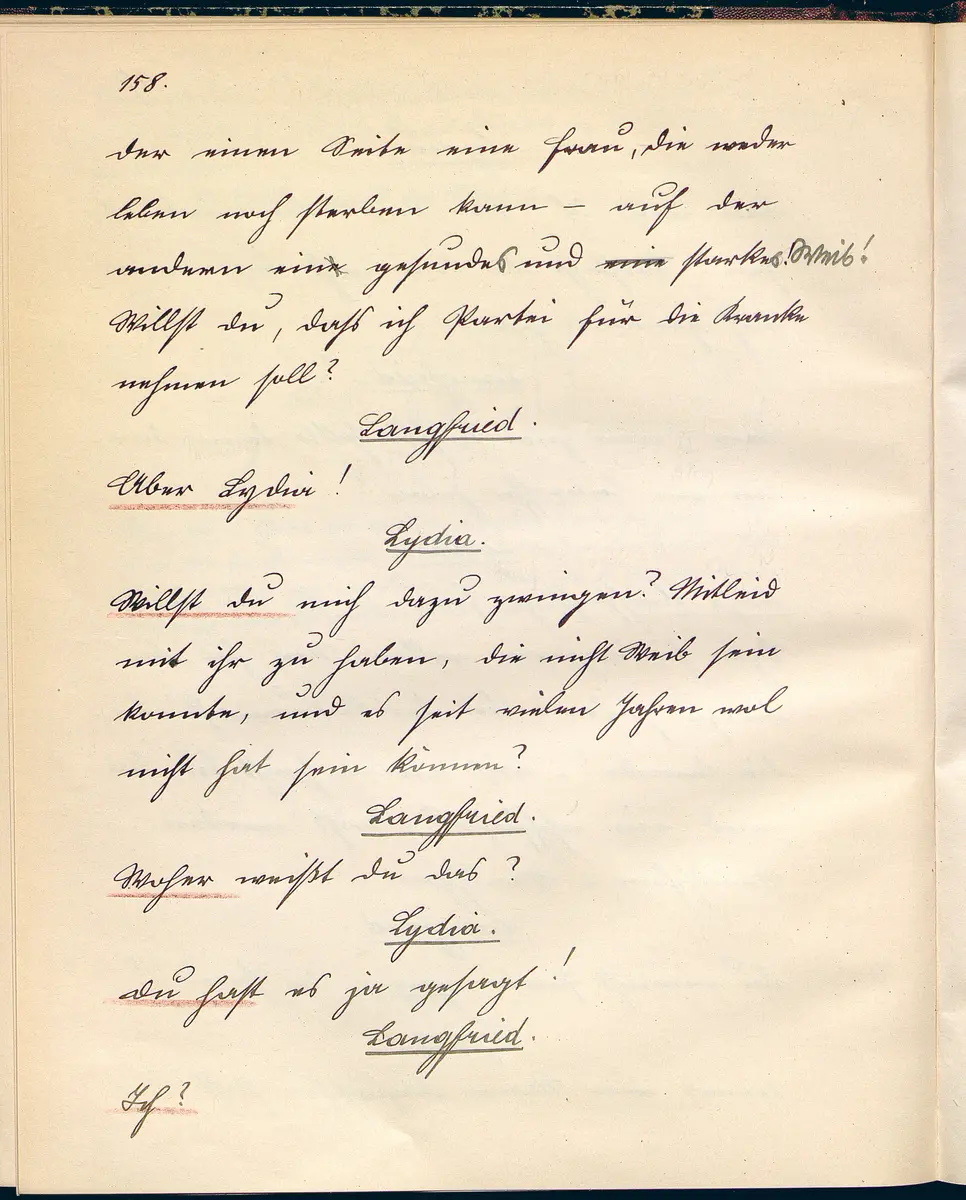 158.
der einen Seite eine Frau, die weder
leben noch sterben kann – auf der
andern ein gesundes und eine starkes! Weib!
Willst du, dass ich Partei für die Kranke
nehmen soll?
Langfried.
Aber Lydia!
Lydia.
Willst du mich dazu zwingen? Mitleid
mit ihr zu haben, die nicht Weib sein
konnte, und es seit vielen Jahren wol
nicht hat sein können?
Langfried.
Woher weißt du das?
Lydia.
Du hast es ja gesagt!
Langfried.
Ich?